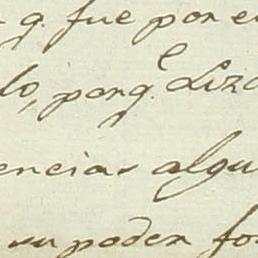 q. fue por e
lo, porq.e Liza
encias algu
su poder fo